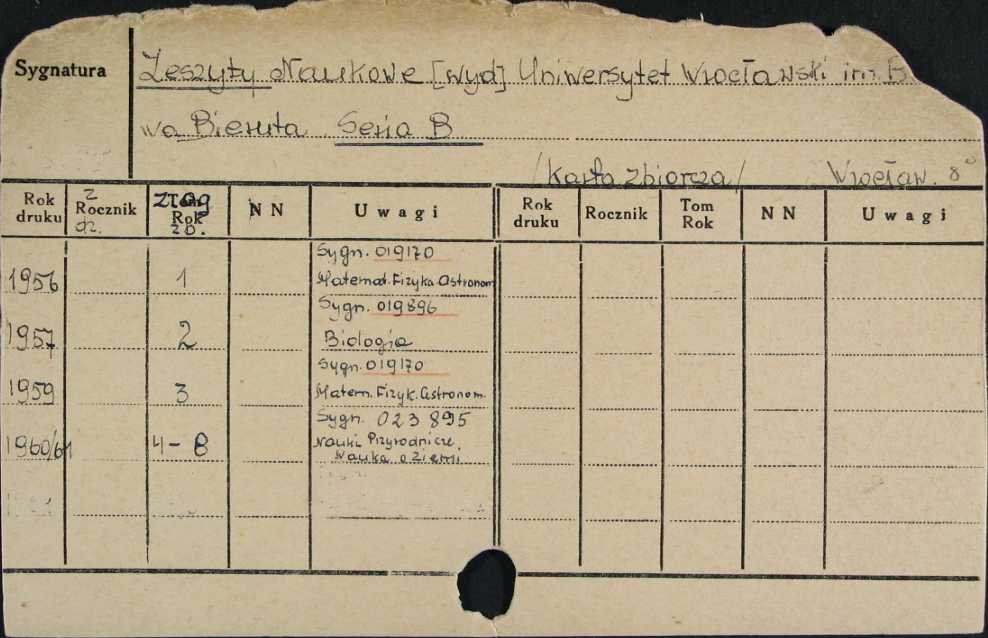 Sygnatura
Zeszyty Naukowe [wyd] Uniwersytet Wrocławski im. B.
wa Bieruta Seria B
/Karta zbiorcza/ Wrocław. 8°
Rok druku Rocznik Rok N N Uwagi Rok druku Rocznik Tom Rok N N Uwagi
Sygn. 019170
1956 1 Matemat. Fizyka. Astronom
Sygn. 019896
1957 2 Biologia
Sygn. 019170
1959 3 Matem. Fizyk. Astronom.
Sygn. 023895
1960/61 4-8 Nauki Przyrodnicze.
Nauka o Ziemi